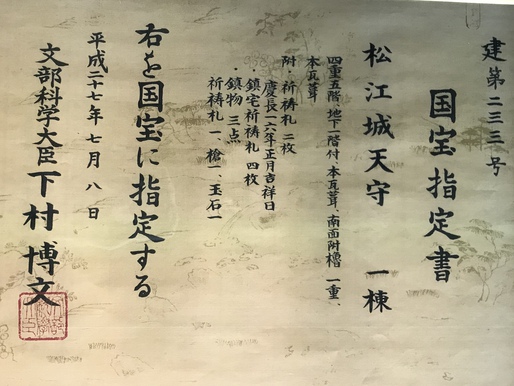 建第二三三号
国宝指定書
松江城天守 一棟
四重五階、地下一階付、本瓦葺、南面附櫓 一重、
本瓦葺
附・祈祷札 二枚
慶長一六年正月吉祥日
・鎮宅祈祷札 四枚
・鎮物 三点
祈祷札 一、槍 一、玉石 一
右を国宝に指定する
平成二十七年七月八日
文部科学大臣 下村博文